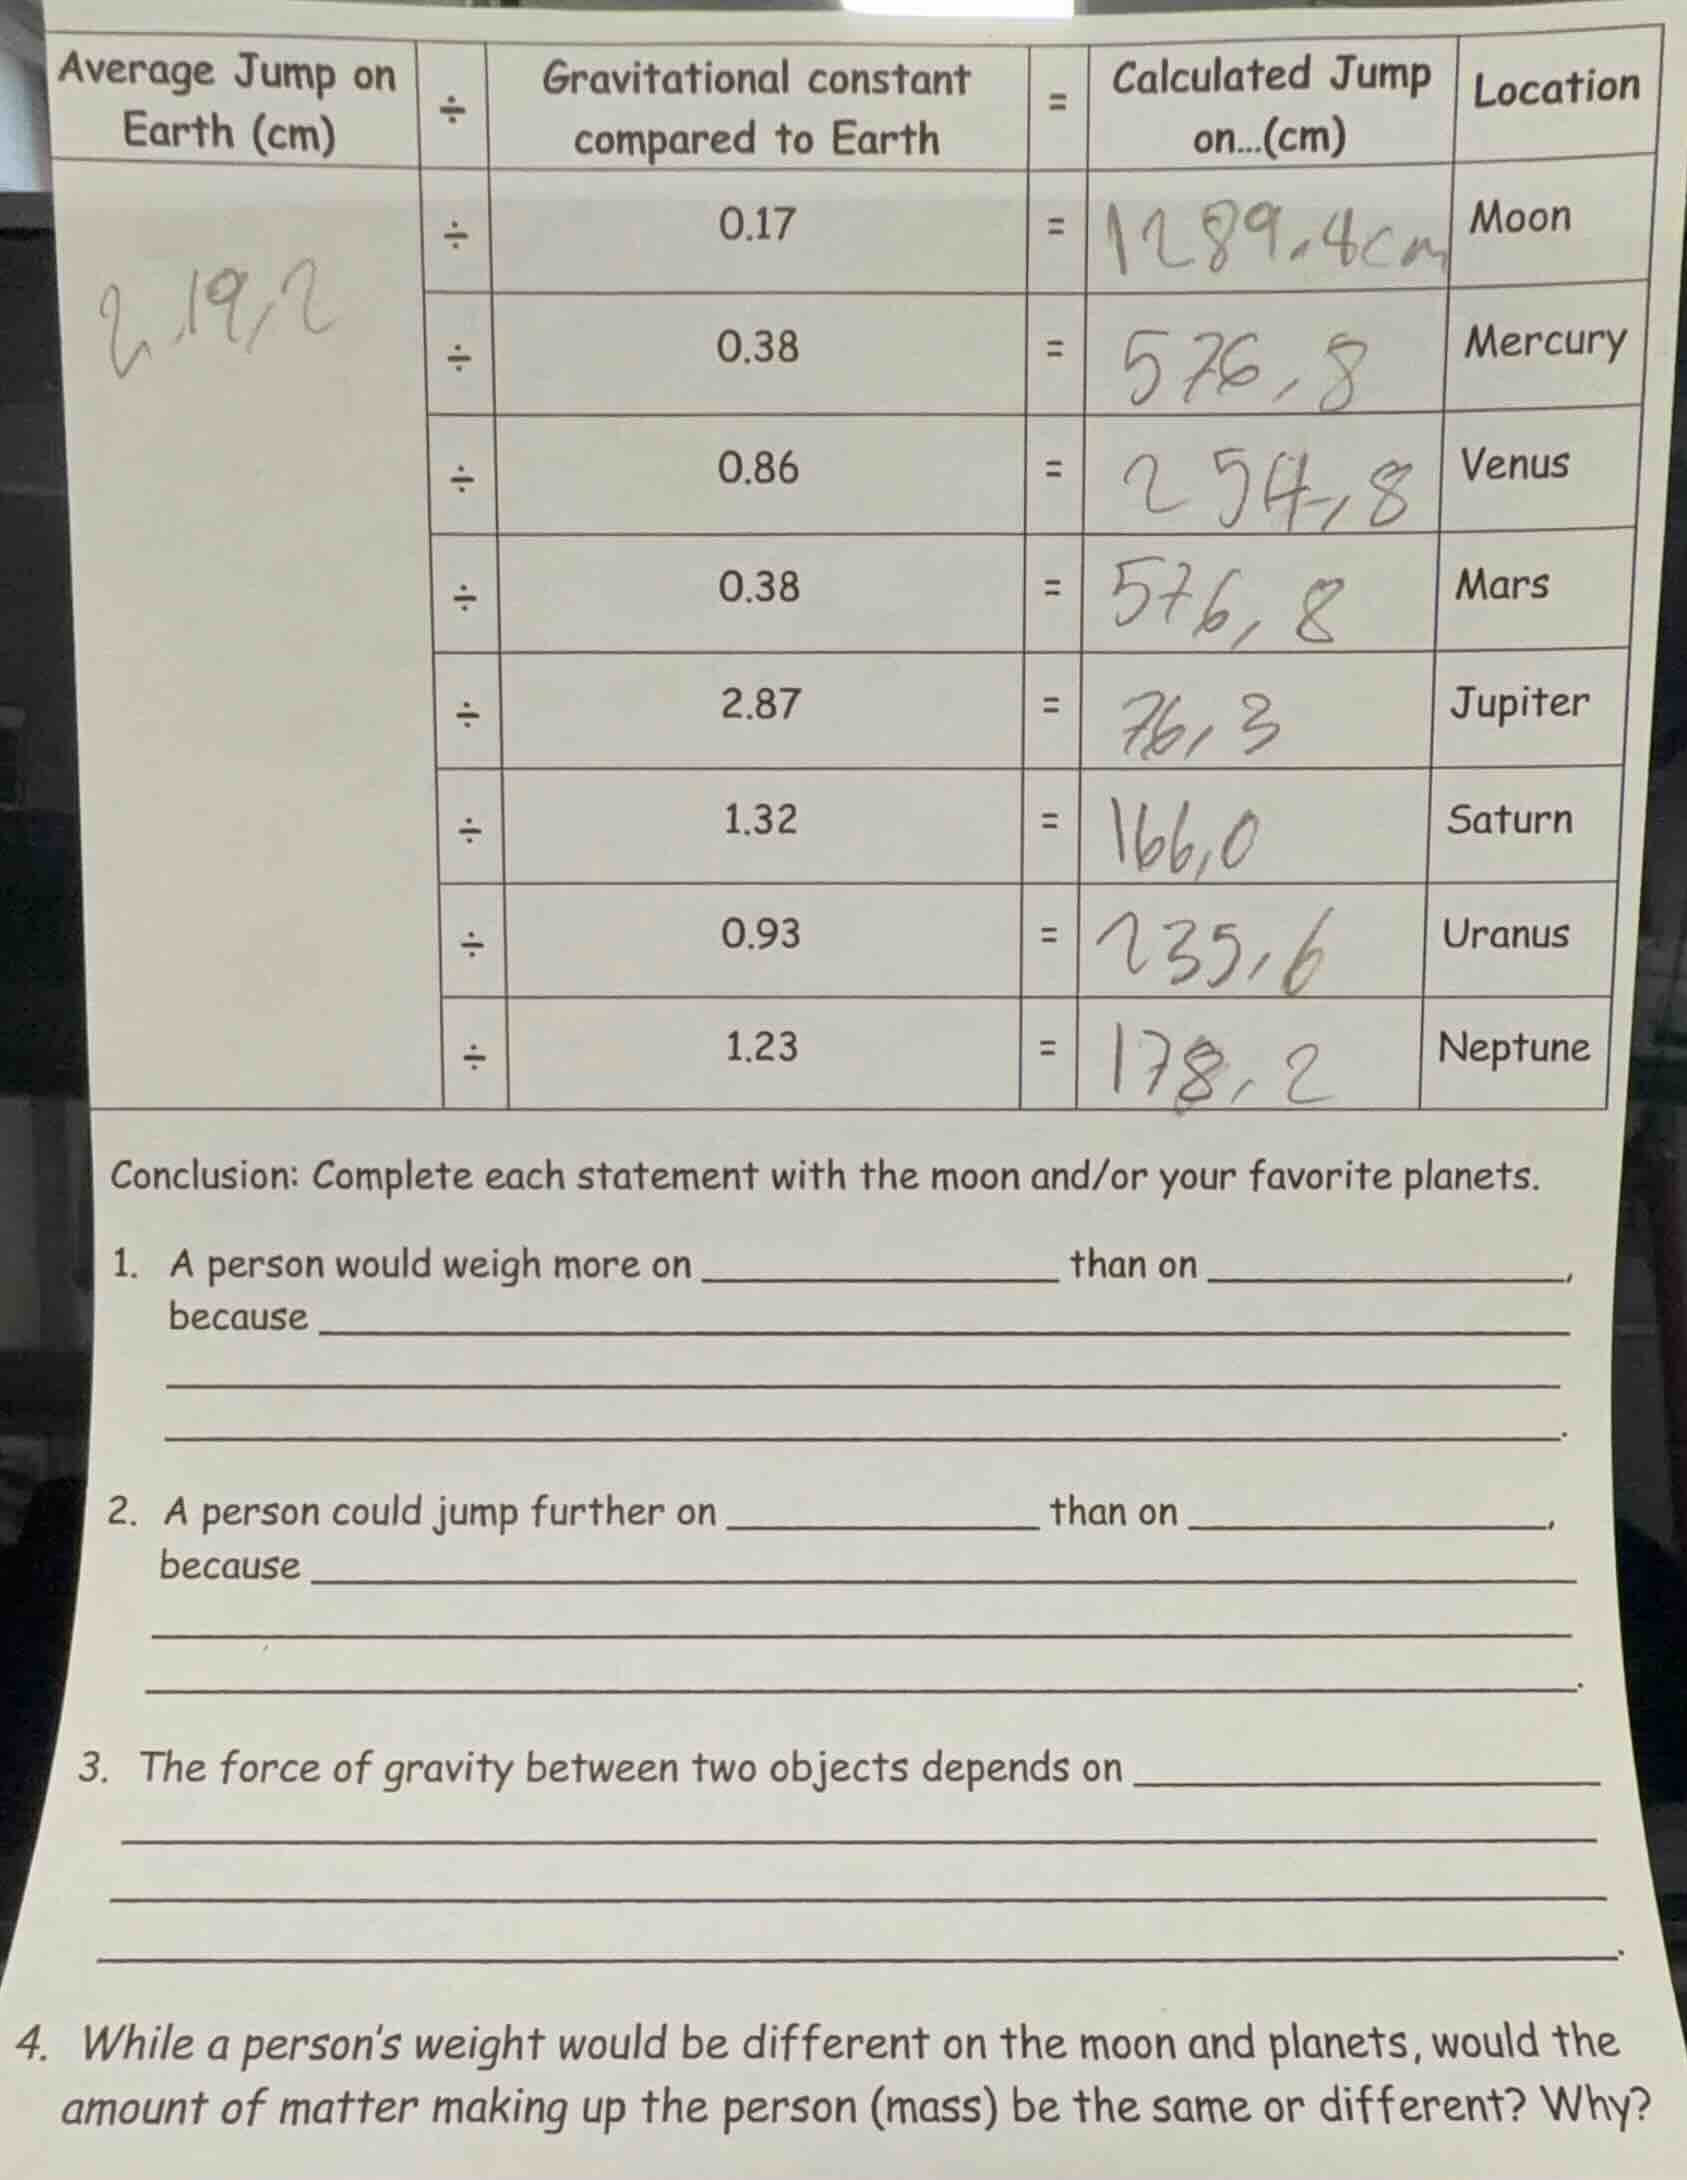 Average Jump on Earth (cm) ÷ Gravitational constant compared to Earth = Calculated Jump on...(cm) Location
2,19,2 ÷ 0.17 = 1289,4cm Moon
÷ 0.38 = 576,8 Mercury
÷ 0.86 = 254,8 Venus
÷ 0.38 = 576,8 Mars
÷ 2.87 = 76,3 Jupiter
÷ 1.32 = 166,0 Saturn
÷ 0.93 = 235,6 Uranus
÷ 1.23 = 178,2 Neptune
Conclusion: Complete each statement with the moon and/or your favorite planets.
1. A person would weigh more on ____________ than on ____________,
because ____________
____________
____________.
2. A person could jump further on ____________ than on ____________,
because ____________
____________
____________.
3. The force of gravity between two objects depends on ____________
____________
____________
____________.
4. While a person's weight would be different on the moon and planets, would the
amount of matter making up the person (mass) be the same or different? Why?